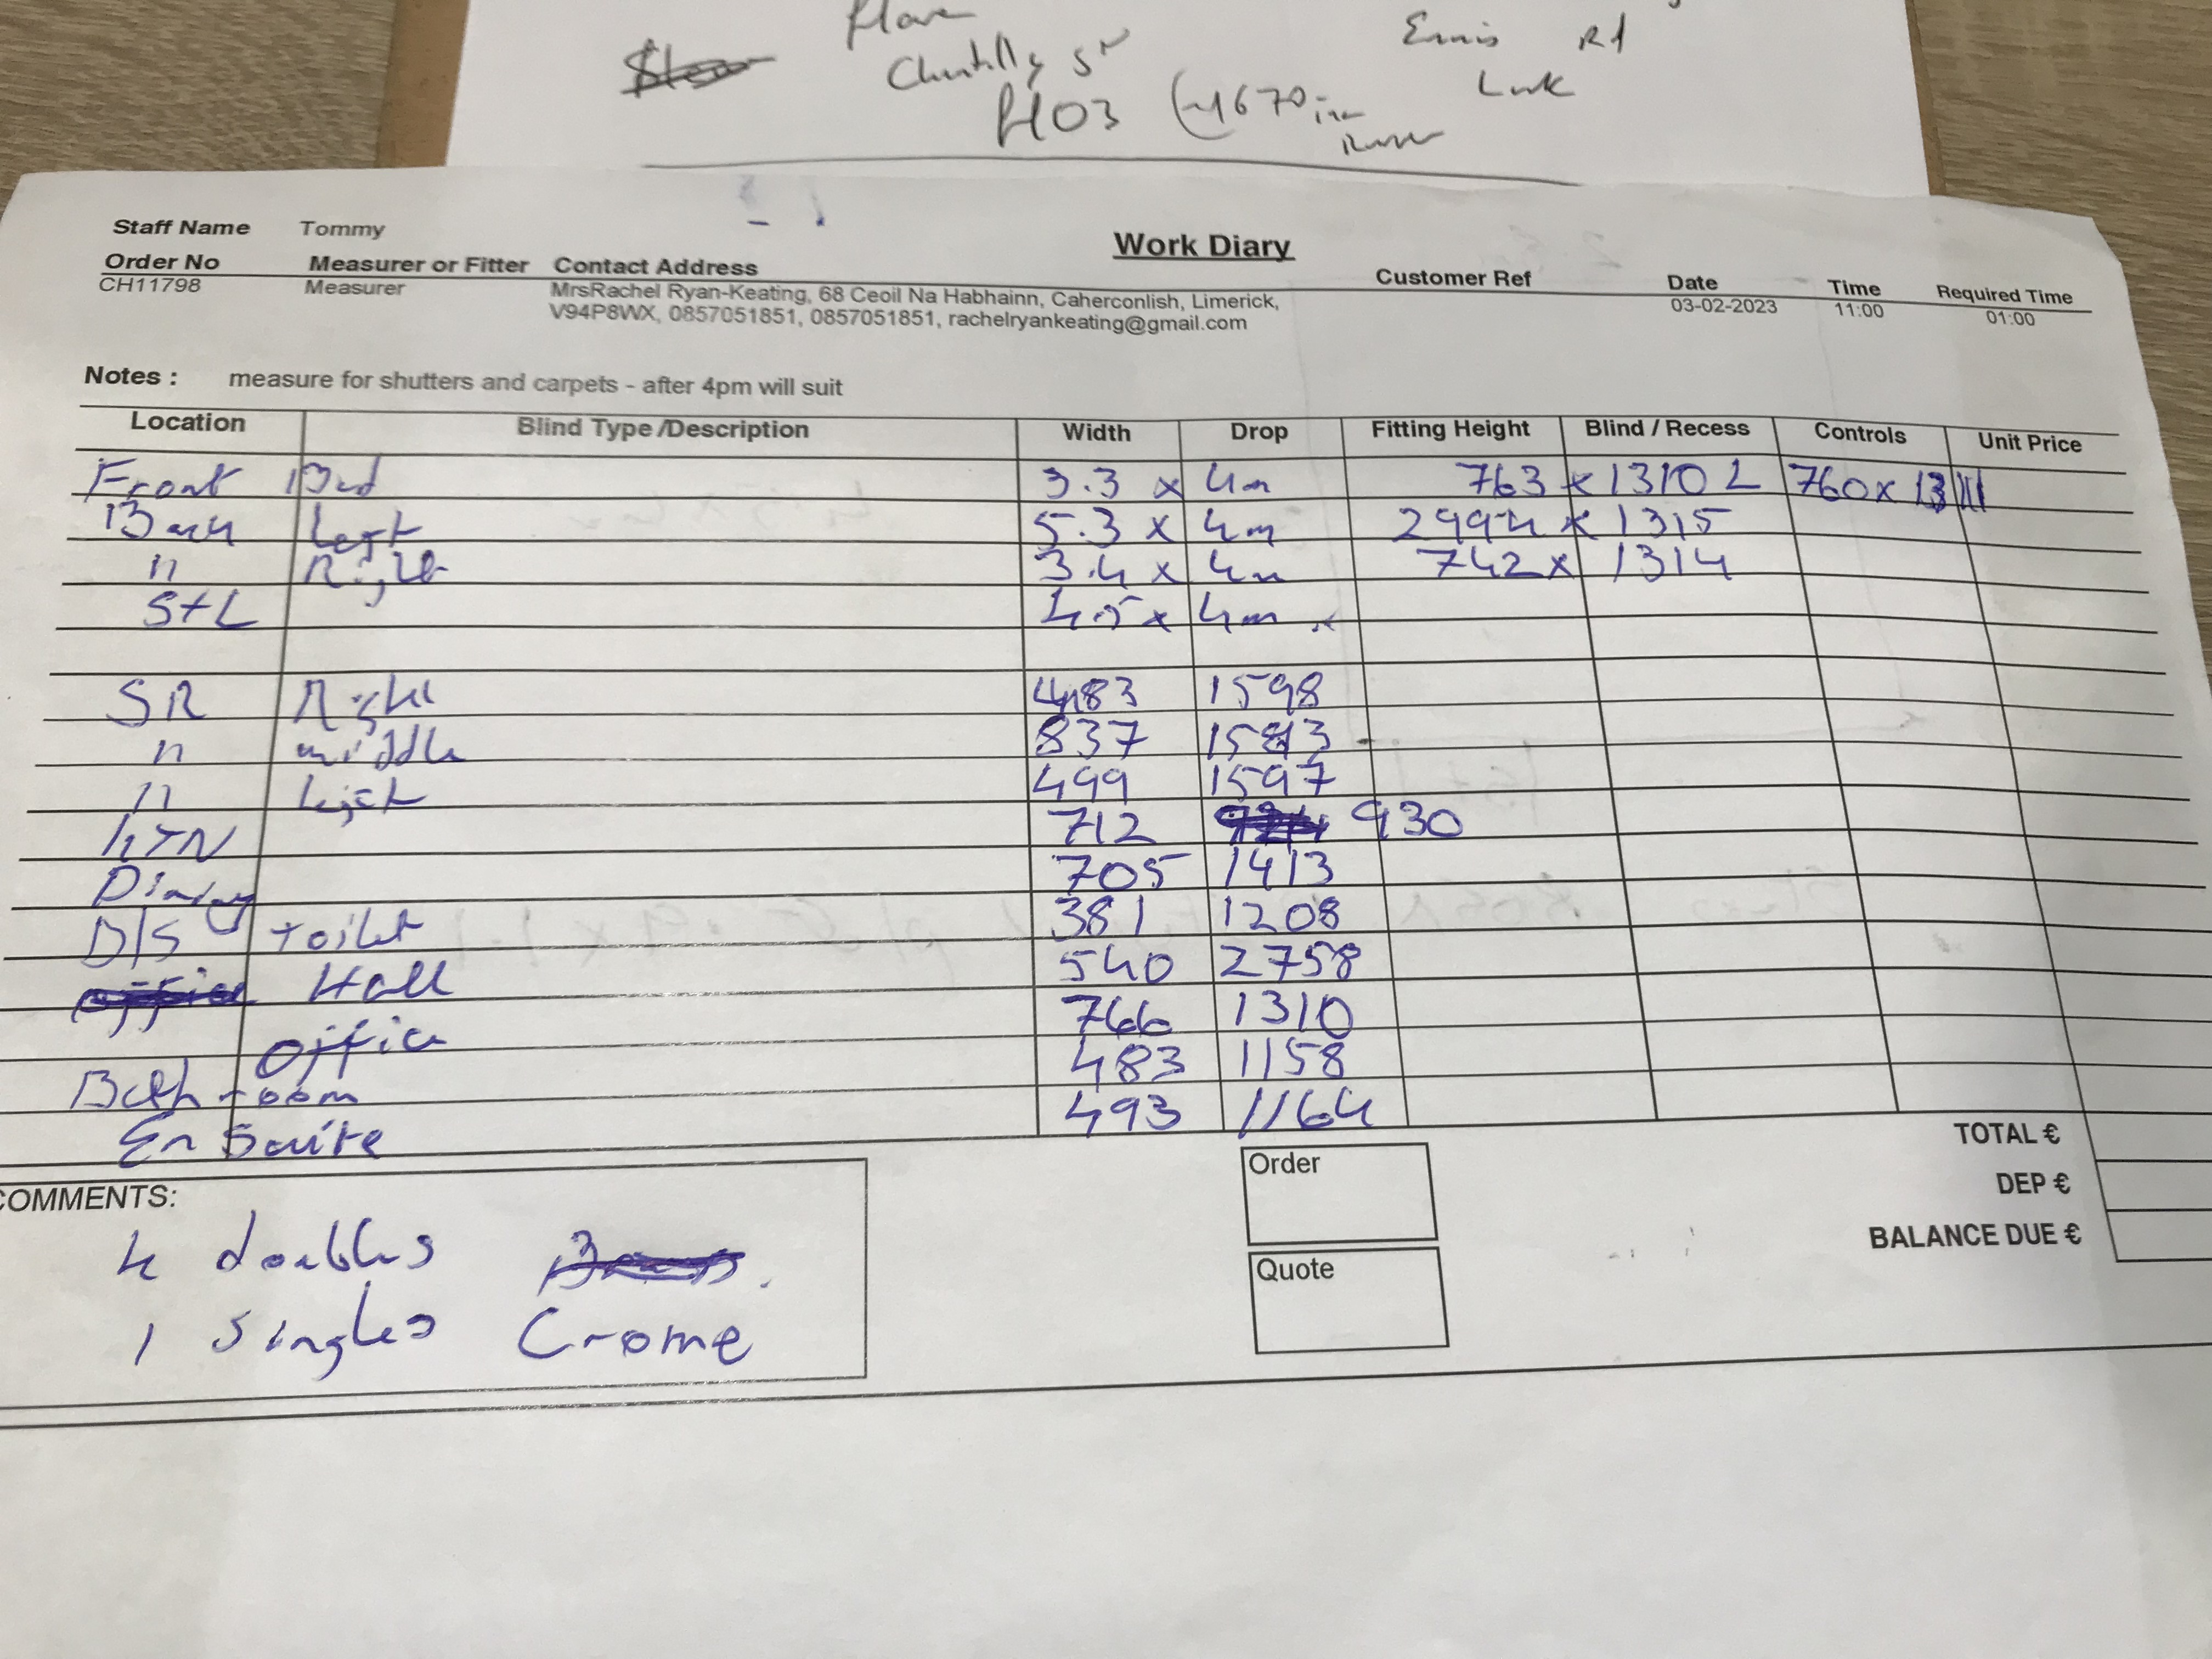 Ennis Rd
Chantilly St
H03 (~1670 in
Staff Name Tommy
Work Diary
Order No Measurer or Fitter Contact Address Customer Ref Date Time Required Time
CH11798 Measurer MrsRachel Ryan-Keating, 68 Ceoil Na Habhainn, Caherconlish, Limerick, 03-02-2023 11:00 01:00
V94P8WX, 0857051851, 0857051851, rachelryankeating@gmail.com
Notes : measure for shutters and carpets - after 4pm will suit
Location Blind Type /Description Width Drop Fitting Height Blind / Recess Controls Unit Price
Front Bed 3.3 x 4m 763 x 1310 L 760 x 1311
Back Left 5.3 x 4m 2994 x 1315
" Right 3.4 x 4m 742 x 1314
S+L 4.5 x 4m
SR Right 483 1598
" middle 837 1593
" Left 499 1597
KTN 712 930
Dining 705 1413
D/S toilet 381 1208
Hall 540 2758
Office 766 1310
Bathroom 483 1158
En Suite 493 1164
TOTAL €
DEP €
BALANCE DUE €
Order
Quote
COMMENTS:
4 doubles
1 singles Crome